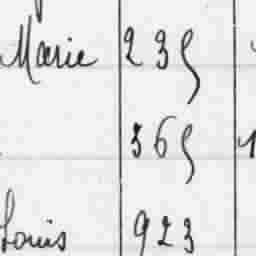 Marie 235
365 1
Louis 923